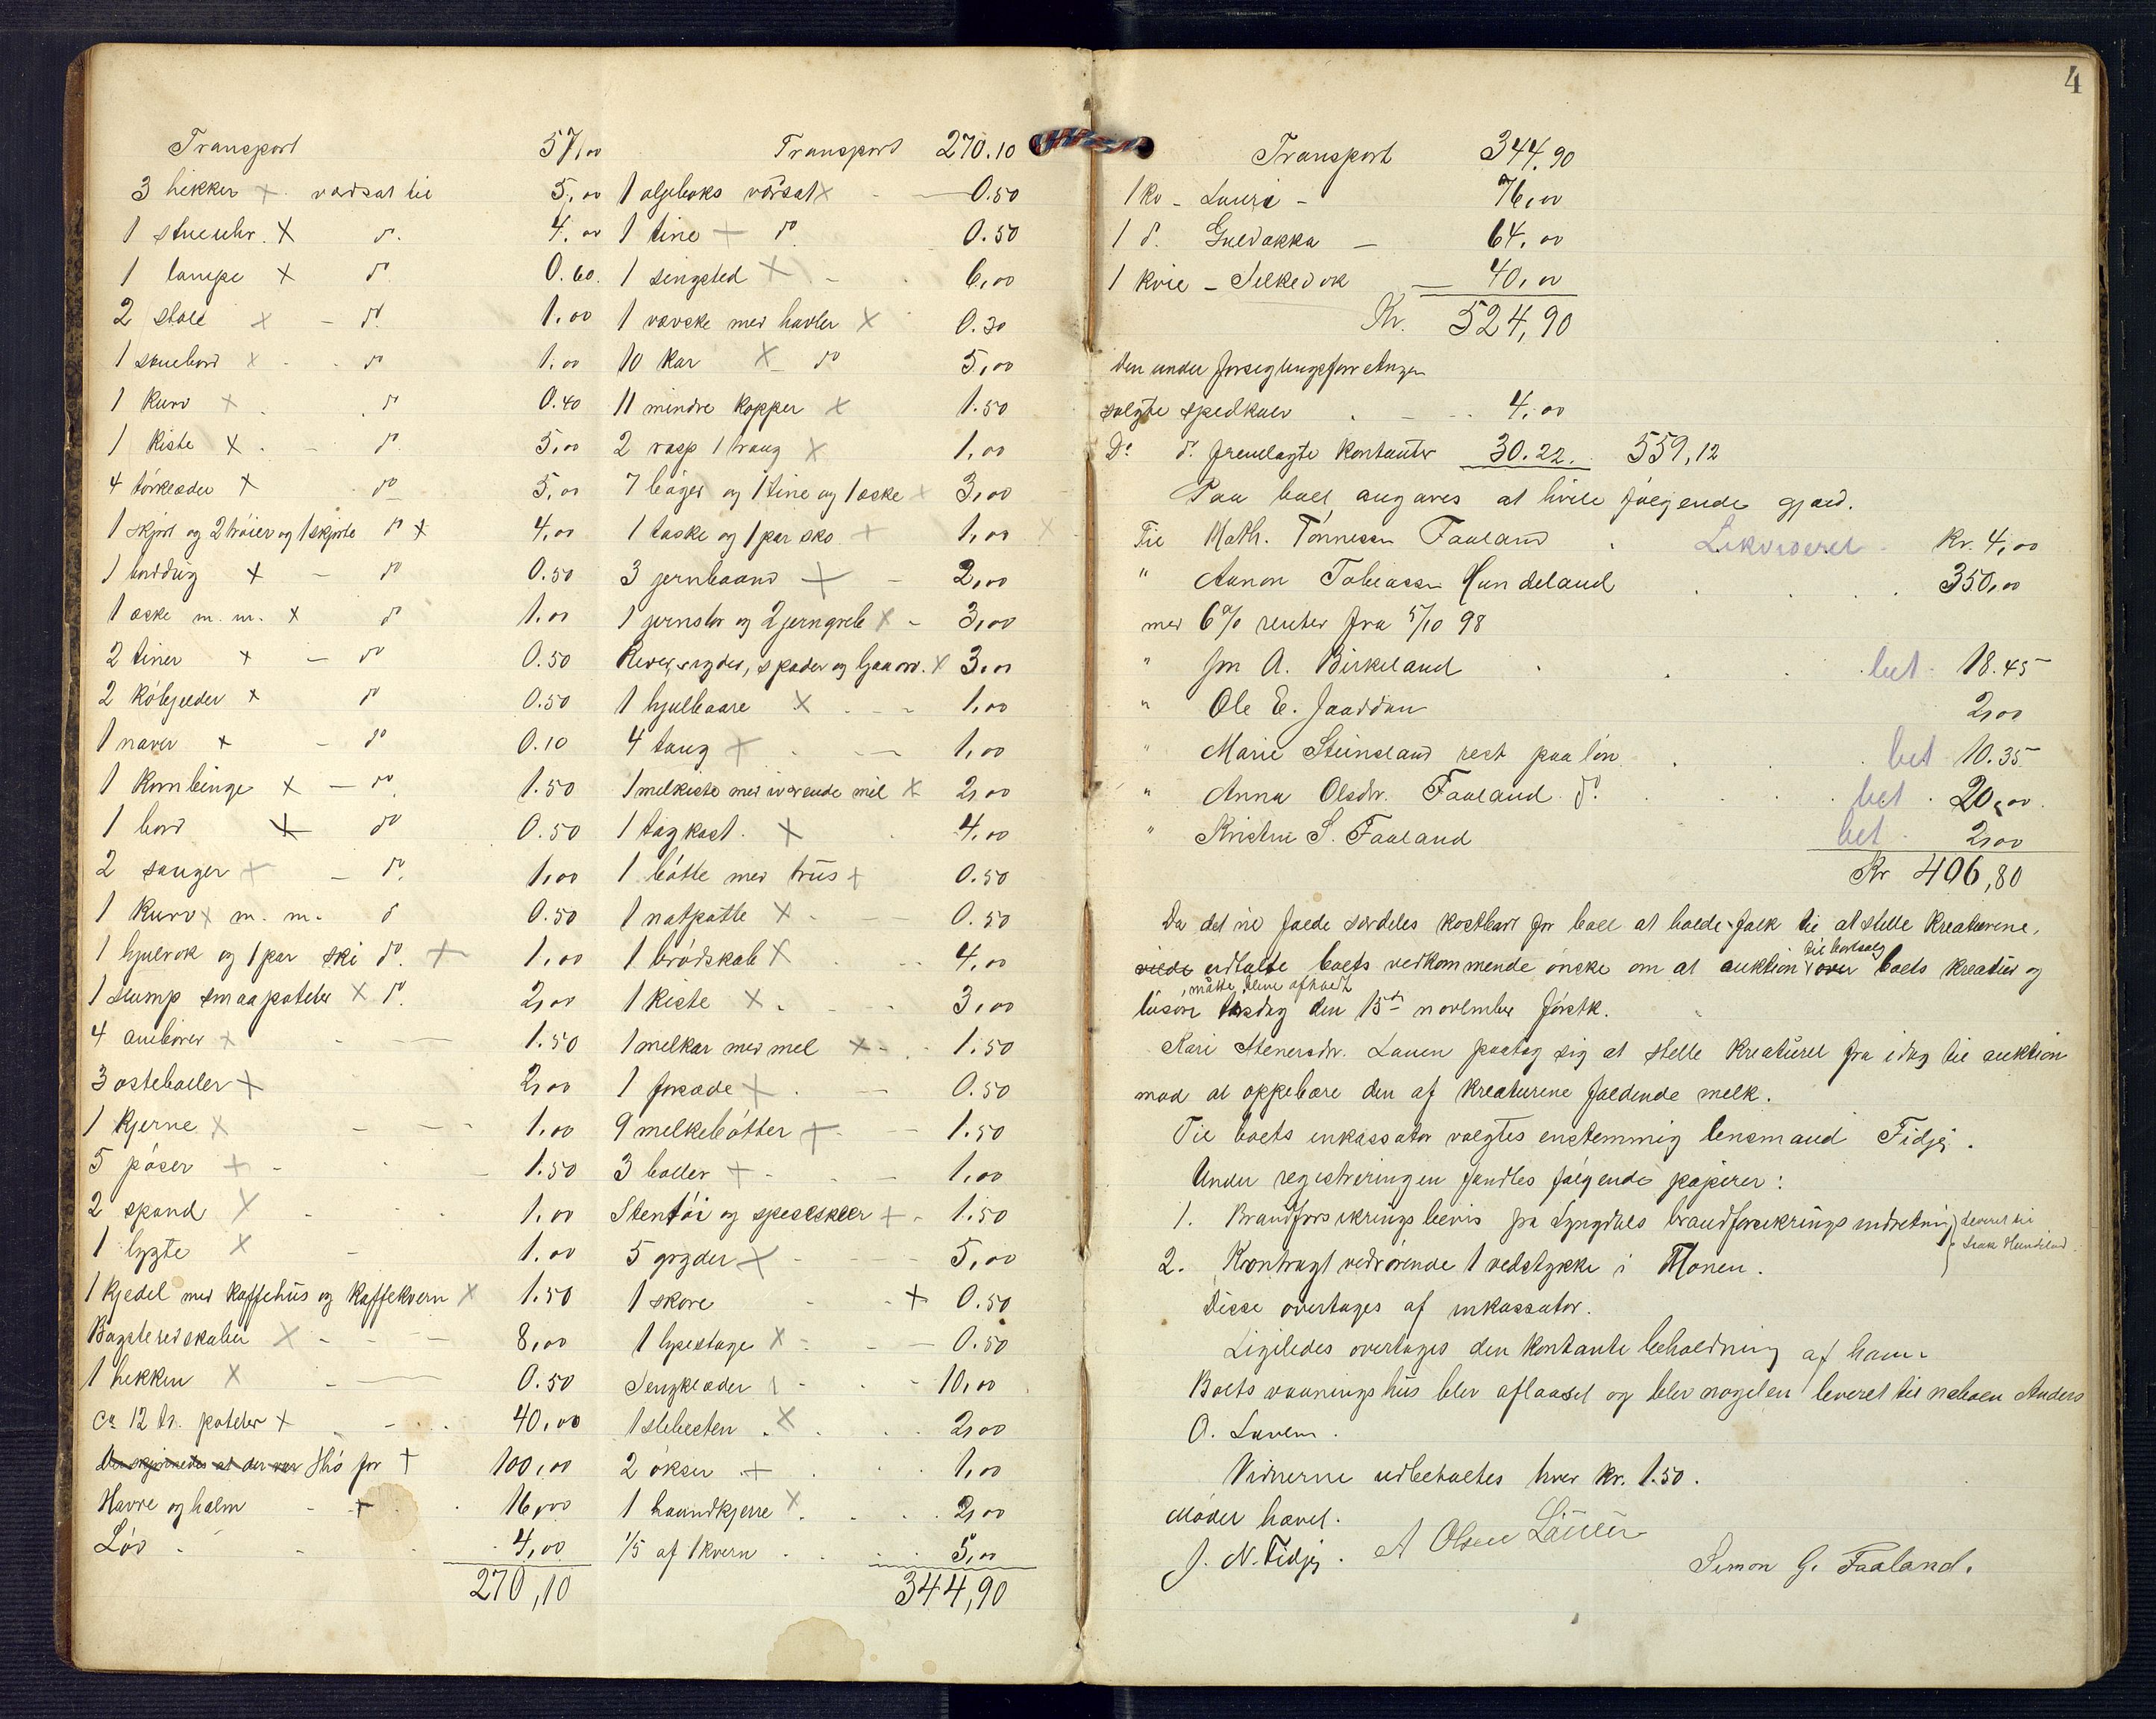 Transport 57,00
3 hekker x værdsat til 5,00
1 stueuhr. x do. 4.00
1 lampe x do 0.60.
2 stole x - do. 1.00
1 stuebord x - do 1.00
1 kurv x . do 0.40
1 kiste x . - do 5,00
4 tørklæder x do 5,00
1 skjørt og 2 trøier og 1 skjorte do x 4,00
1 borddug x - do 0.50
1 æske m. m. x do 1.00
2 tiner x - do 0.50
2 kóbjelder x do 0.50
1 naver x - do 0.10
1 kornbinge x - do. 1.50
1 bord x do 0.50
2 senger x - do. 1,00
1 kurv x m. m. d 0.50
1 hjulrok og 1 par ski do. x 1,00
1 slump smaapoteter x do. 2,00
4 amborer x - 1.50
3 osteboller x 2,00
1 kjerne x - - - 1.00
5 pøser x - 1.50
2 spand x 1,00
1 lygte x - 1.00
1 kjedel med kaffehus og kaffekvern x 1.50
Bagsteredskaber x - - 8,00
1 hekken x - 0.50
Ca 12 tr. poteter x - 40,00
Der skjønnedes at der var Hó for x 100,00
Havre og halm - x 16,00
Løv 4,00
270,10
Transport 270.10
1 oljeboks værsat x - 0.50
1 tine x do 0.50
1 sengsted x - 6,00
1 væske med havler x 0.30
10 kar x do 5,00
11 mindre kopper x 1.50
2 rasp 1 traug x 1,00
7 bøger og 1 tine og 1 æske x 3,00
1 taske og 1 par sko x 1,00 x
3 jernbaand x - 2,00
1 jernstør og 2 jerngreb x - 3,00
River, sigder, spader og ljaaorv. x 3,00
1 hjulbaare x - 1,00
4 taug x - 1,00
1 melkiste med iværende mel x 2,00
1 tøgkast. x 4.00
1 bøtte med triis x 0.50
1 natpotte x - 0.50
1 brødskab x 4,00
1 kiste x . 3,00
1 melkar med mel x - 1.50
1 forsæde x . 0.50
9 melkebøtter x - 1.50
3 boller x - 1,00
Stentøi og speseskeer x - 1.50
5 gryder x 5,00
1 skore - x 0.50
1 lysestage x - 0.50
Sengklæder x - 10,00
1 slibesten . x 2,00
2 økser x 1,00
1 haandkjerre x . 2,00
1/5 af 1 kvern . 5,00
344,90
4
Transport 344.90
1 ko - Lauri - 76,00
1 d. Guldakka - 64,00
1 kvie - Silkedok - 40,00
Kr. 524,90
Den under forseglingsforretningen
solgte spedkalv . - 4,00
Do d. fremlagte kontanter 30.22. 559,12
Paa boet angaves at hvile følgende gjæld.
Til Math. Tønnesen Faaland . Likvideret . Kr. 4,00
" Aanon Tobiassen Hundeland . 350,00
med 6% renter fra 5/10 98
" fm A. Birkeland . bet . 18.45
" Ole E. Jaaddan 2,00
" Marie Steinsland rest paa løn . bet 10.35
" Anna Olsdtr. Faaland do. . bet . 20,00.
" Kristine S. Faaland bet . 2,00
Kr 406,80
Da det vil falde særdeles kostbart for boet at holde folk til at stelle kreaturene,
vilde udtalte boets vedkommende ønske om at auktion til bortsalg over boets kreatur og
løsøre måtte blive afholdt tirsdag den 15de november førstk.
Kari Stenersdtr. Lauen paatog sig at stelle kreaturet fra idag til auktion
mod at oppebære den af kreaturene faldende melk.
Til boets inkassator valgtes enstemmig lensmand Fidjej.
Under registreringen fandtes følgende papirer:
1. Brandforsikringsbevis fra Lyngdals brandforsikringsindretning } leveret til
Isak Hundeland.
2. Kontragt vedrørende 1 vedstykke i Monen.
Disse overtages af inkassator.
Ligeledes overtages den kontante beholdning af ham.
Boets vaaningshus blev aflaaset og blev nøgelen leveret til naboen Anders
O. Lauen.
Vidnerne udbetaltes hver kr. 1.50.
Mødet hævet.
J. N. Fidjej. A Olsen Lauen
Simon G. Faaland.